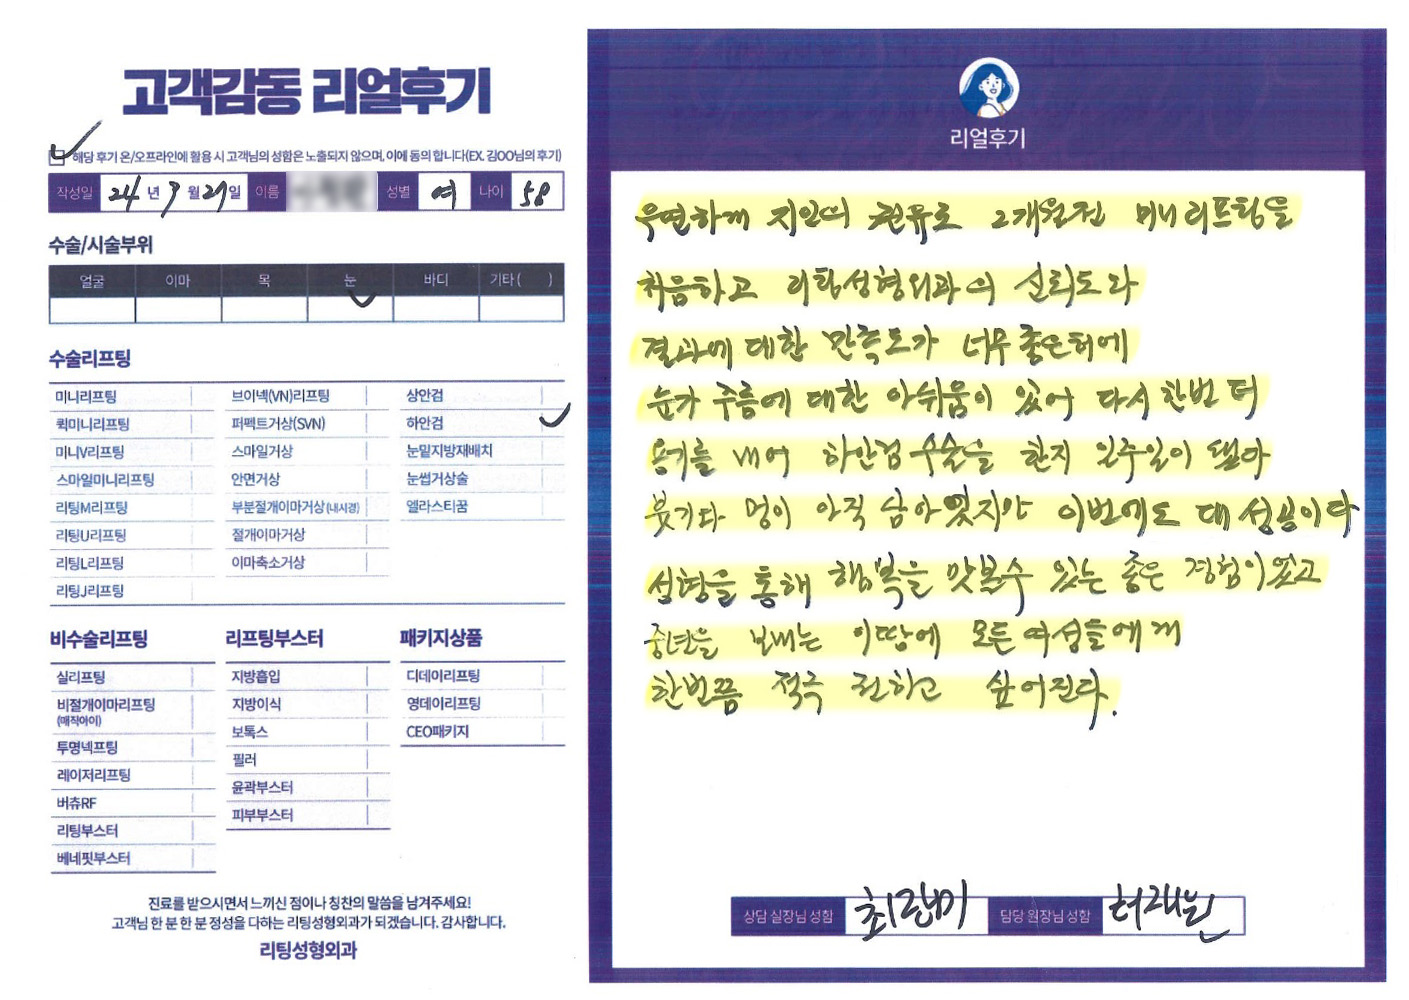 고객감동 리얼후기
해당 후기 온/오프라인에 활용 시 고객님의 성함은 노출되지 않으며, 이에 동의 합니다(EX. 김OO님의 후기)
작성일 24년 9월 21일 이름 성별 여 나이 58
수술/시술부위
얼굴 이마 목 눈 바디 기타( )
수술리프팅
미니리프팅 브이넥(VN)리프팅 상안검
퀵미니리프팅 퍼펙트거상(SVN) 하안검
미니V리프팅 스마일거상 눈밑지방재배치
스마일미니리프팅 안면거상 눈썹거상술
리팅M리프팅 부분절개이마거상(내시경) 엘라스티꿈
리팅U리프팅 절개이마거상
리팅L리프팅 이마축소거상
리팅J리프팅
비수술리프팅 리프팅부스터 패키지상품
실리프팅 지방흡입 디데이리프팅
비절개이마리프팅 지방이식 영데이리프팅
(매직아이)
투명넥프팅 보톡스 CEO패키지
레이저리프팅 필러
버츄RF 윤곽부스터
리팅부스터 피부부스터
베네핏부스터
진료를 받으시면서 느끼신 점이나 칭찬의 말씀을 남겨주세요!
고객님 한 분 한 분 정성을 다하는 리팅성형외과가 되겠습니다. 감사합니다.
리팅성형외과
리얼후기
우연하게 지인의 권유로 2개월전 미니리프팅을
처음하고 리팅성형외과의 신뢰도와
결과에 대한 만족도가 너무 좋은터에
눈가 주름에 대한 아쉬움이 있어 다시한번 더
용기를 내어 하안검 수술을 한지 일주일이 됐다
붓기와 멍이 아직 남아있지만 이번에도 대성공이다
성형을 통해 행복을 맛볼수 있는 좋은 경험이었고
중년을 보내는 이땅에 모든 여성들에게
한번쯤 적극 권하고 싶어진다.
상담 실장님 성함 최장미 담당 원장님 성함